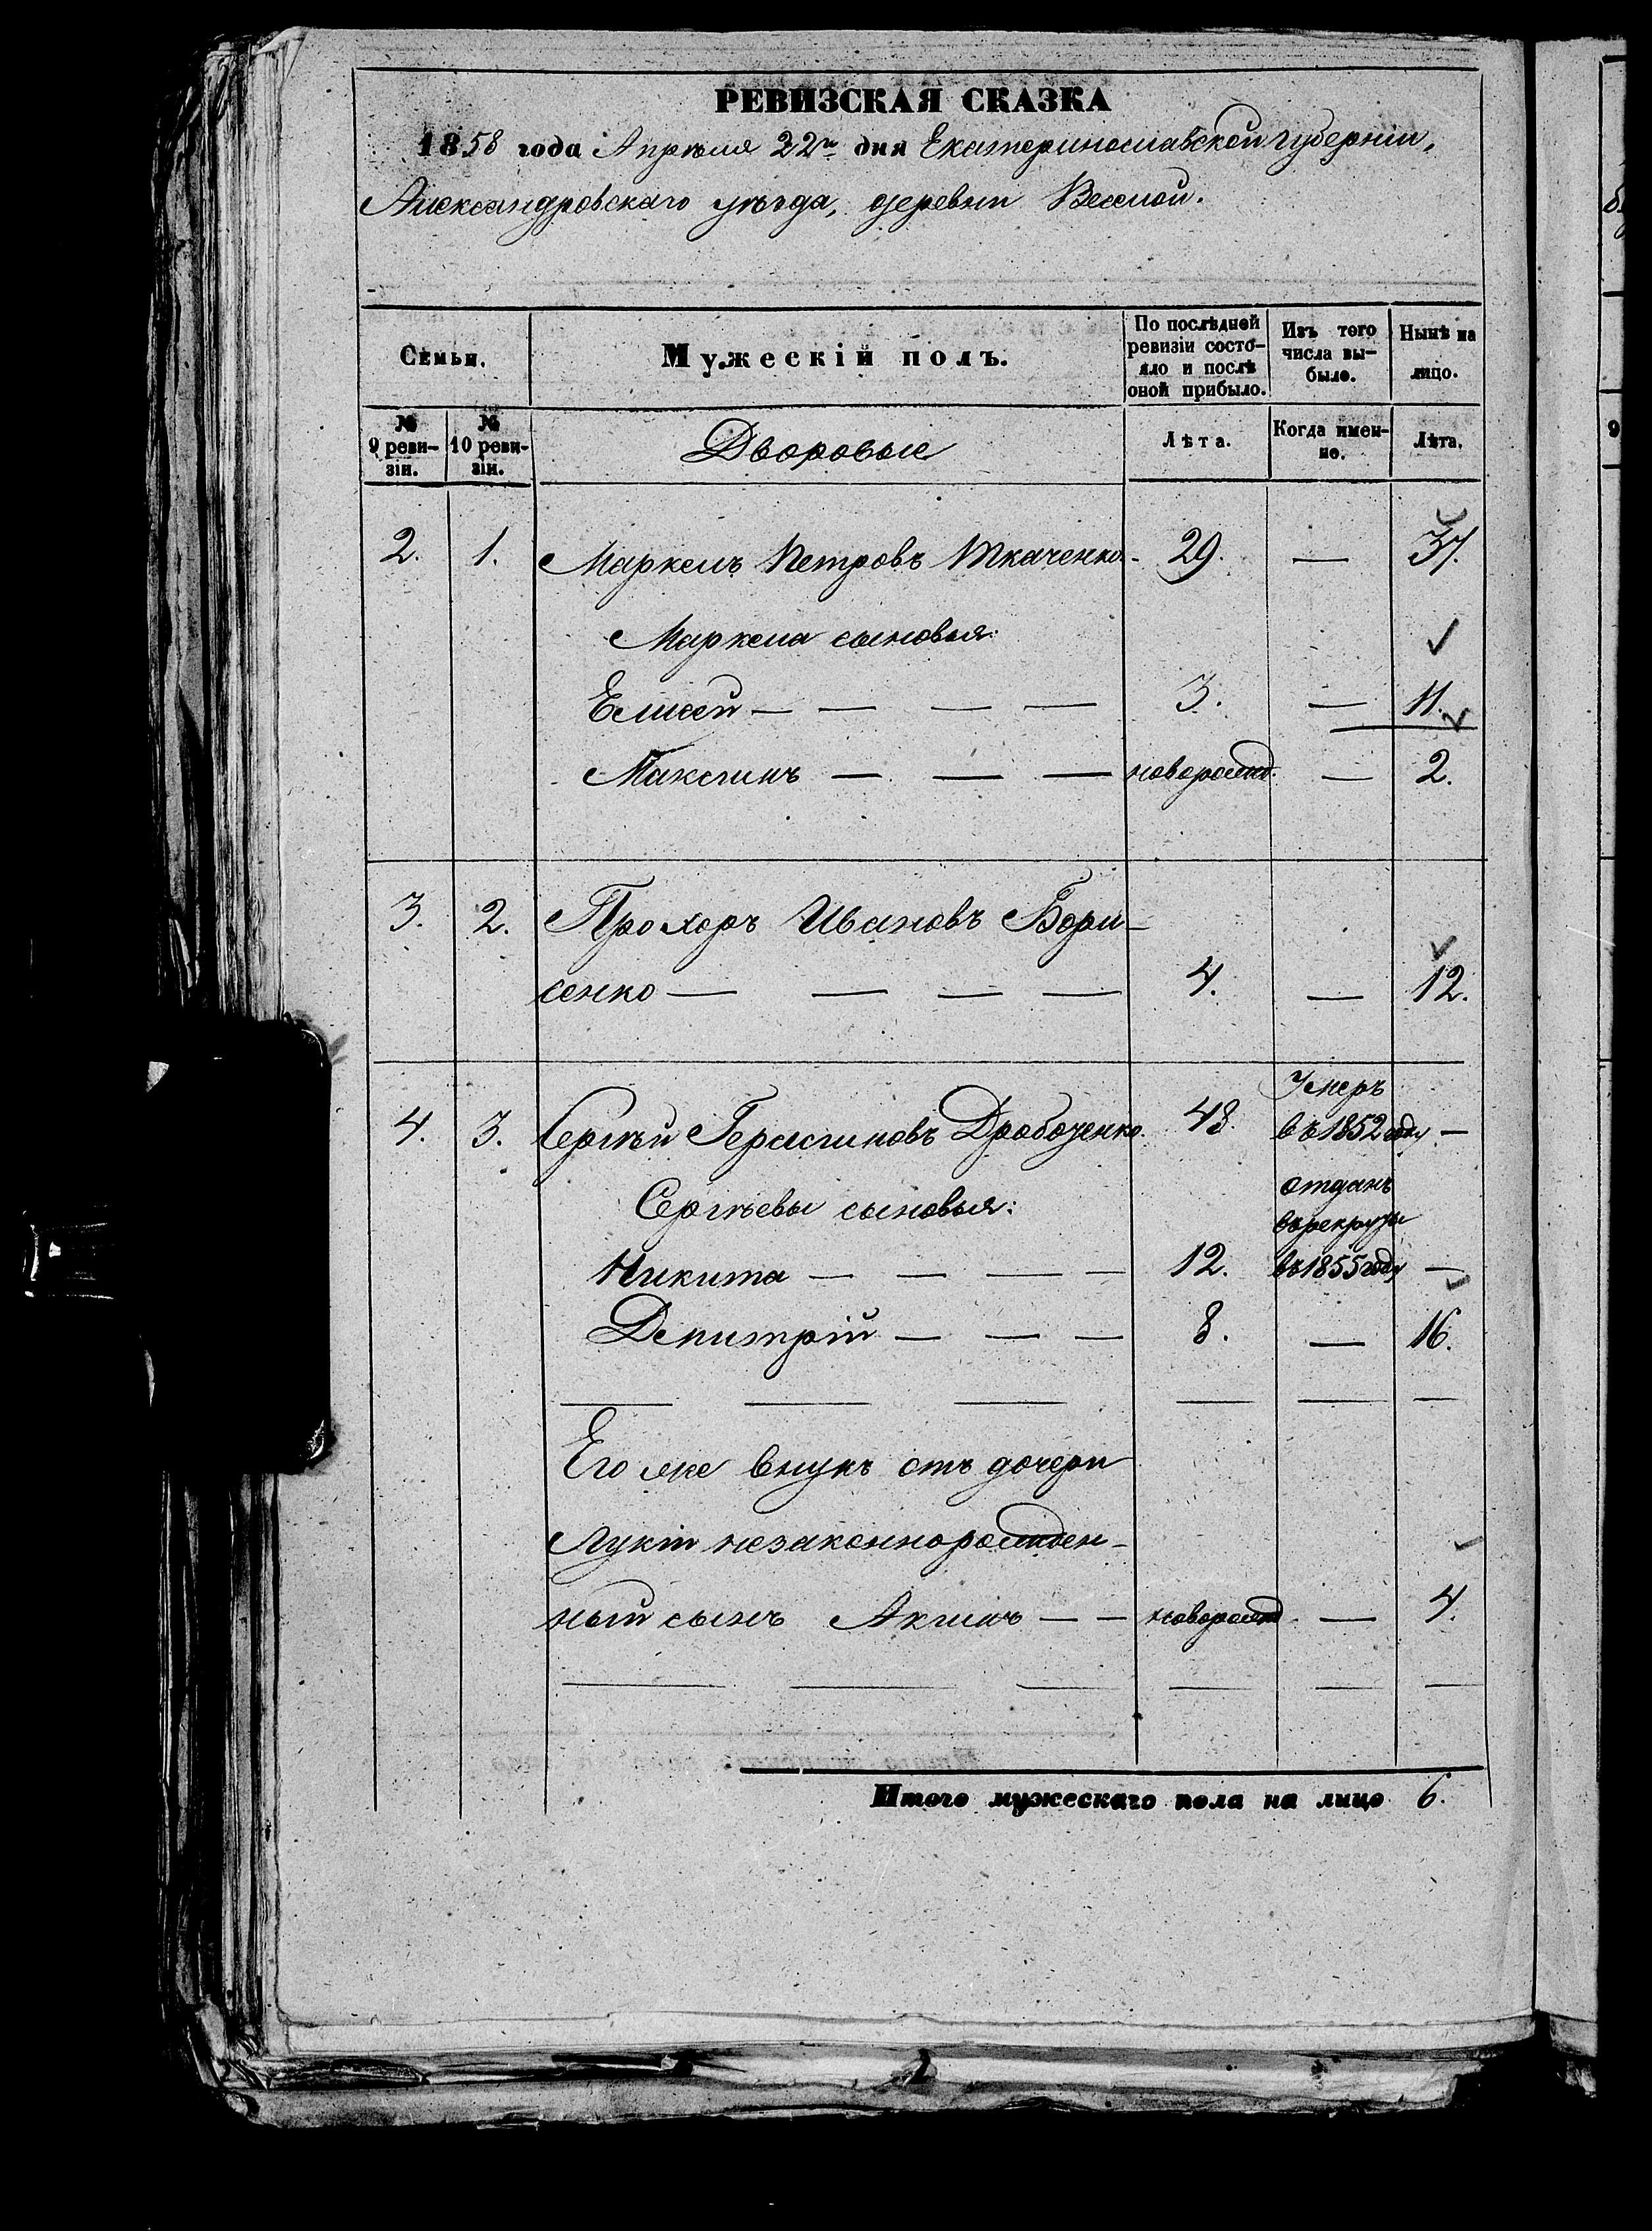 РЕВИЗСКАЯ СКАЗКА
1858 года Апрѣля 22го дня Екатеринославской губерніи,
Александровскаго уѣзда, деревни Веселой.
Семьи.
Мужескій полъ.
По послѣдней ревизіи состояло и послѣ оной прибыло.
Изъ того числа выбыло.
Нынѣ на лицо.
№ 9 ревизіи.
№ 10 ревизіи.
Дворовые
Лѣта.
Когда именно.
Лѣта.
2. 1. Маркелъ Петровъ Ткаченко - 29. — 37.
Маркела сыновья:
Елисей — — — — 3. — 11.
Максимъ — — — новорожд. — 2.
3. 2. Прохоръ Ивановъ Бори-
сенко — — — — 4. — 12.
Умеръ
4. 3. Сергѣй Герасимовъ Дробоценко. 48. въ 1852 году —
отданъ
Сергѣевы сыновья:
въ рекруты
Никита — — — — 12. въ 1855 году —
Дмитрій — — — 8. — 16.
Его же внукъ отъ дочери
Лукіи незаконнорожден-
ный сынъ Акимъ — — новорожд. — 4.
Итого мужескаго пола на лицо 6.